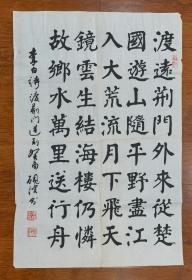 渡遠荆門外來從楚
國遊山隨平野盡江
入大荒流月下飛天
鏡雲生結海樓仍憐
故鄉水萬里送行舟
李白詩渡荆门送别